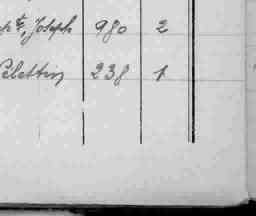 pte, Joseph 980 2
Célestin 238 1